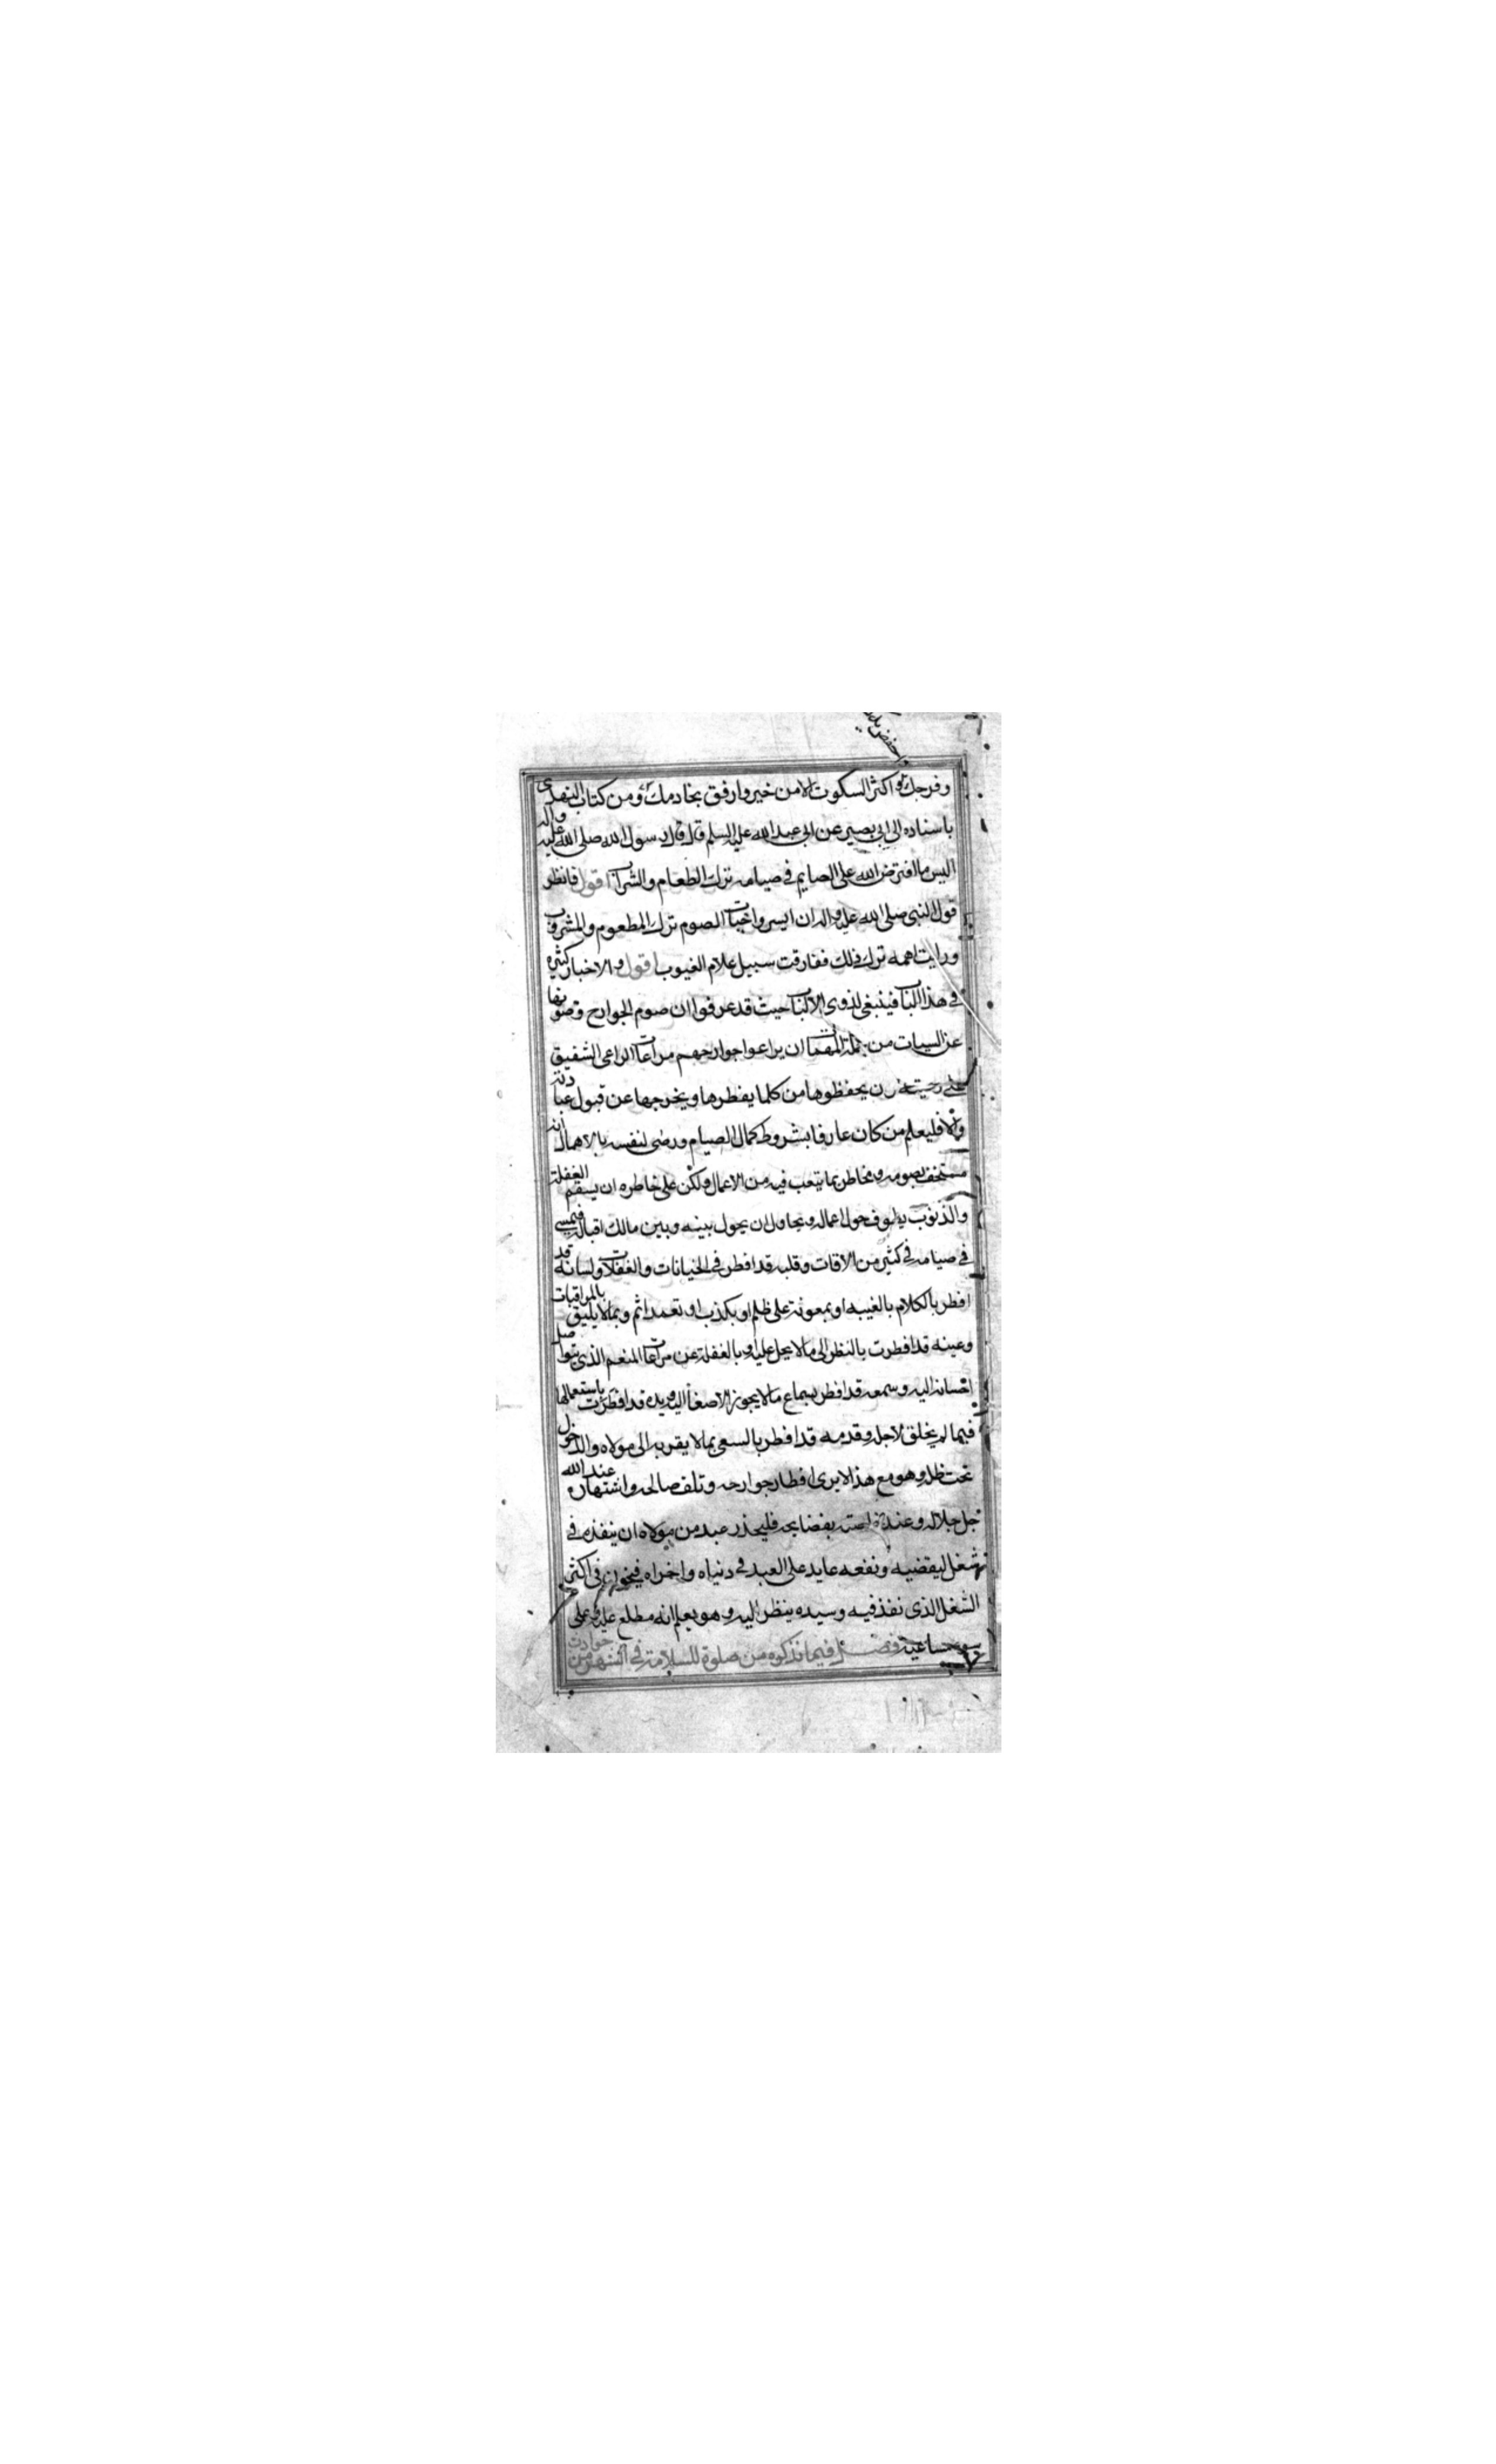 احفض بصرك
وفرجك واكثر السكوت الا من خير وارفق بخادمك ومن كتاب النهدى
باسناده الى ابى بصير عن ابى عبد الله عليه السلم قال قال رسول الله صلى الله عليه واله
اليس ما افترض الله على الصايم فى صيامه ترك الطعام والشراب اقول فانظر
قول النبى صلى الله عليه واله ان ايسر واجبات الصوم ترك المطعوم والمشروب
ورايت اهمه ترك ذلك ففارقت سبيل علام الغيوب اقول والاخبار كثيرة
فى هذا الباب فينبغى لذوى الالباب حيث قد عرفوا ان صوم الجوارح وصونها
عن السيات من جملة المهمات ان يراعوا جوارحهم مراعات الراعى الشفيق
على رعيته وان يحفظوها من كلما يفطرها ويخرجها عن قبول عبادته
والا فليعلم من كان عارفا بشروط كمال الصيام ورضى لنفسه بالاهمال انه
مستخف بصومه ومخاطر بما يتعب فيه من الاعمال ولكن على خاطره ان يسقم الغفلة
والذنوب يطوف حول اعماله ويحاول ان يحول بينه وبين مالك اقباله فيمسى
فى صيامه فى كثير من الافات وقلبه قد افطر فى الخيانات والغفلات ولسانه قد
افطر بالكلام بالغيبه او بمعونة على ظلم او بكذب او تعمد اثم وبما لا يليق بالمراقبات
وعينه قد افطرت بالنظر الى ما لا يحل عليه او بالغفلة عن مراعات المنعم الذى يتواصل
احسانه اليه وسمعه قد افطر بسماع ما لا يجوز الاصغا اليه ويده قد افطرت باستعمالها
فيما لم يخلق لاجله وقدمه قد افطر بالسعى بما لا يقربه الى مولاه والدخول
تحت ظله وهو مع هذا لا يرى افطار جوارحه وتلف صالحه واشتهاره عند الله
جل جلاله وعند خاصته بفضايحه فليحذر عبد من مولاه ان ينفذه فى
شغل ليقضيه ونفعه عايد على العبد فى دنياه واخراه فيخون فى اكثر
الشغل الذى نفذ فيه وسيده ينظر اليه وهو يعلم انه مطلع عليه وعلى
سوء مساعيه فصل فيما نذكره من صلوة للسلامة فى الشهر من حوادث